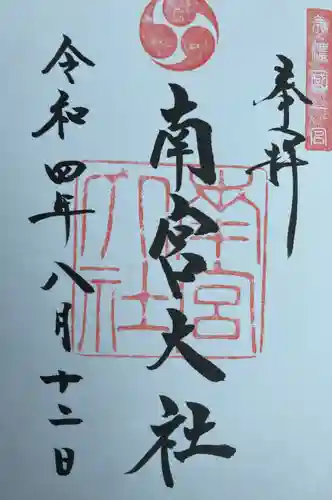 美濃國一宮
奉拝
南宮大社
南宮大社
令和四年八月十二日